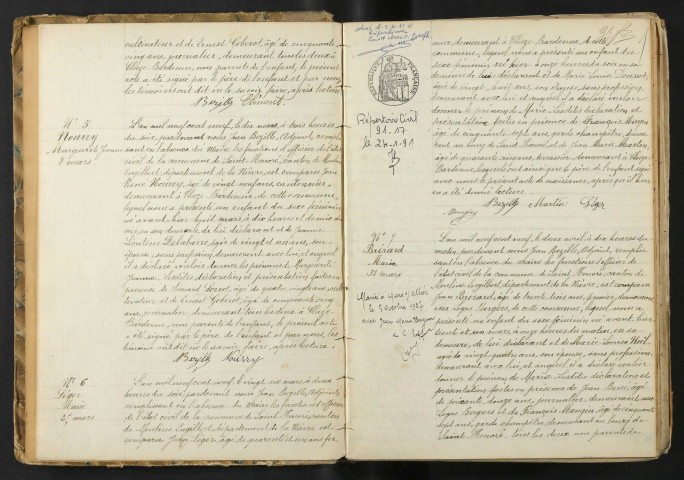 cultivateur et de Ernest Coberot, âgé de cinquante
cinq ans, journalier, demeurant tous les deux à
Bordenne, non parents de l'enfant, le présent
acte a été signé par le père de l'enfant et par nous,
les témoins ont dit ne le savoir faire, après lecture
Bezille Clément
N° 5
Nourry
Marguerite Jeanne
8 mars
L'an mil neuf cent neuf, le dix mars, à trois heures
du soir, pardevant nous Jean Bezille, Adjoint, remplis-
sant en l'absence du Maire les fonctions d'officier de l'état
civil de la commune de Saint-Honoré, canton de Moulins
Engilbert, département de la Nièvre, est comparu Jean
René Nourry, âgé de vingt neuf ans, cantonnier,
demeurant à Bordenne de cette commune,
lequel nous a présenté un enfant du sexe féminin
né avant hier huit mars, à dix heures et demie du
soir, en sa demeure, de lui déclarant et de Jeanne
Delabarre, âgée de vingt et un ans, son
épouse, sans profession, demeurant avec lui, et auquel
il a déclaré vouloir donner les prénoms de Marguerite
Jeanne. Lesdites déclaration et présentation faites en
présence de Léonard, âgé de quatre vingts ans, cul-
tivateur et de Ernest Coberot, âgé de cinquante cinq
ans, journalier, demeurant tous les deux à
Bordenne, non parents de l'enfant, le présent acte
a été signé par le père de l'enfant et par nous, les
témoins ont dit ne le savoir faire, après lecture.
Bezille Nourry
N° 6
Léger
Marie
25 mars
L'an mil neuf cent neuf, le vingt six mars, à deux
heures du soir, pardevant nous Jean Bezille, Adjoint,
remplissant en l'absence du Maire les fonctions d'officier
de l'état civil de la commune de Saint-Honoré, canton
de Moulins Engilbert, département de la Nièvre, est
comparu Jean Léger, âgé de quarante et un ans, fer
mier, demeurant à Bordenne, de cette
commune, lequel nous a présenté un enfant du
sexe féminin né hier à onze heures du soir en sa
demeure de lui déclarant et de Marie Louise,
âgée de vingt huit ans, son épouse, sans profession,
demeurant avec lui et auquel il a déclaré vouloir
donner le prénom de Marie. Lesdites déclaration et
présentation faites en présence de François Mangin
âgé de cinquante sept ans, garde champêtre, demeu-
rant au bourg de Saint Honoré et de Jean Marie Martin,
âgé de quarante cinq ans, demeurant à
Bordenne, lesquels ont ainsi que le père de l'enfant signé
avec nous le présent acte de naissance, après qu'il leur
en a été donné lecture.
Bezille Martin Léger
Mangin
RÉPUBLIQUE FRANÇAISE
Répertoire Civil
91.17
le 24.1.91
N° 7
Brérard
Maria
31 mars
Mariée
le 9 octobre 1927
avec Jean Marie
L'an mil neuf cent neuf, le deux avril, à dix heures du
matin, pardevant nous Jean Bezille, Adjoint, remplis-
sant en l'absence du Maire les fonctions d'officier de
l'état civil de la commune de Saint Honoré, canton de
Moulins Engilbert, département de la Nièvre, est comparu
Jean Brérard, âgé de trente trois ans, fermier, demeurant
aux Loges Bergers, de cette commune, lequel nous a
présenté un enfant du sexe féminin né avant hier
trente et un mars, à onze heures du matin, en sa
demeure, de lui déclarant et de Marie Louise,
âgée de vingt quatre ans, son épouse, sans profession,
demeurant avec lui, et auquel il a déclaré vouloir
donner le prénom de Maria. Lesdites déclaration et
présentation faites en présence de Jean, âgé
de soixante douze ans, journalier, demeurant aux
Loges Bergers et de François Mangin, âgé de cinquante
sept ans, garde champêtre, demeurant au bourg de
Saint Honoré, tous les deux non parents de